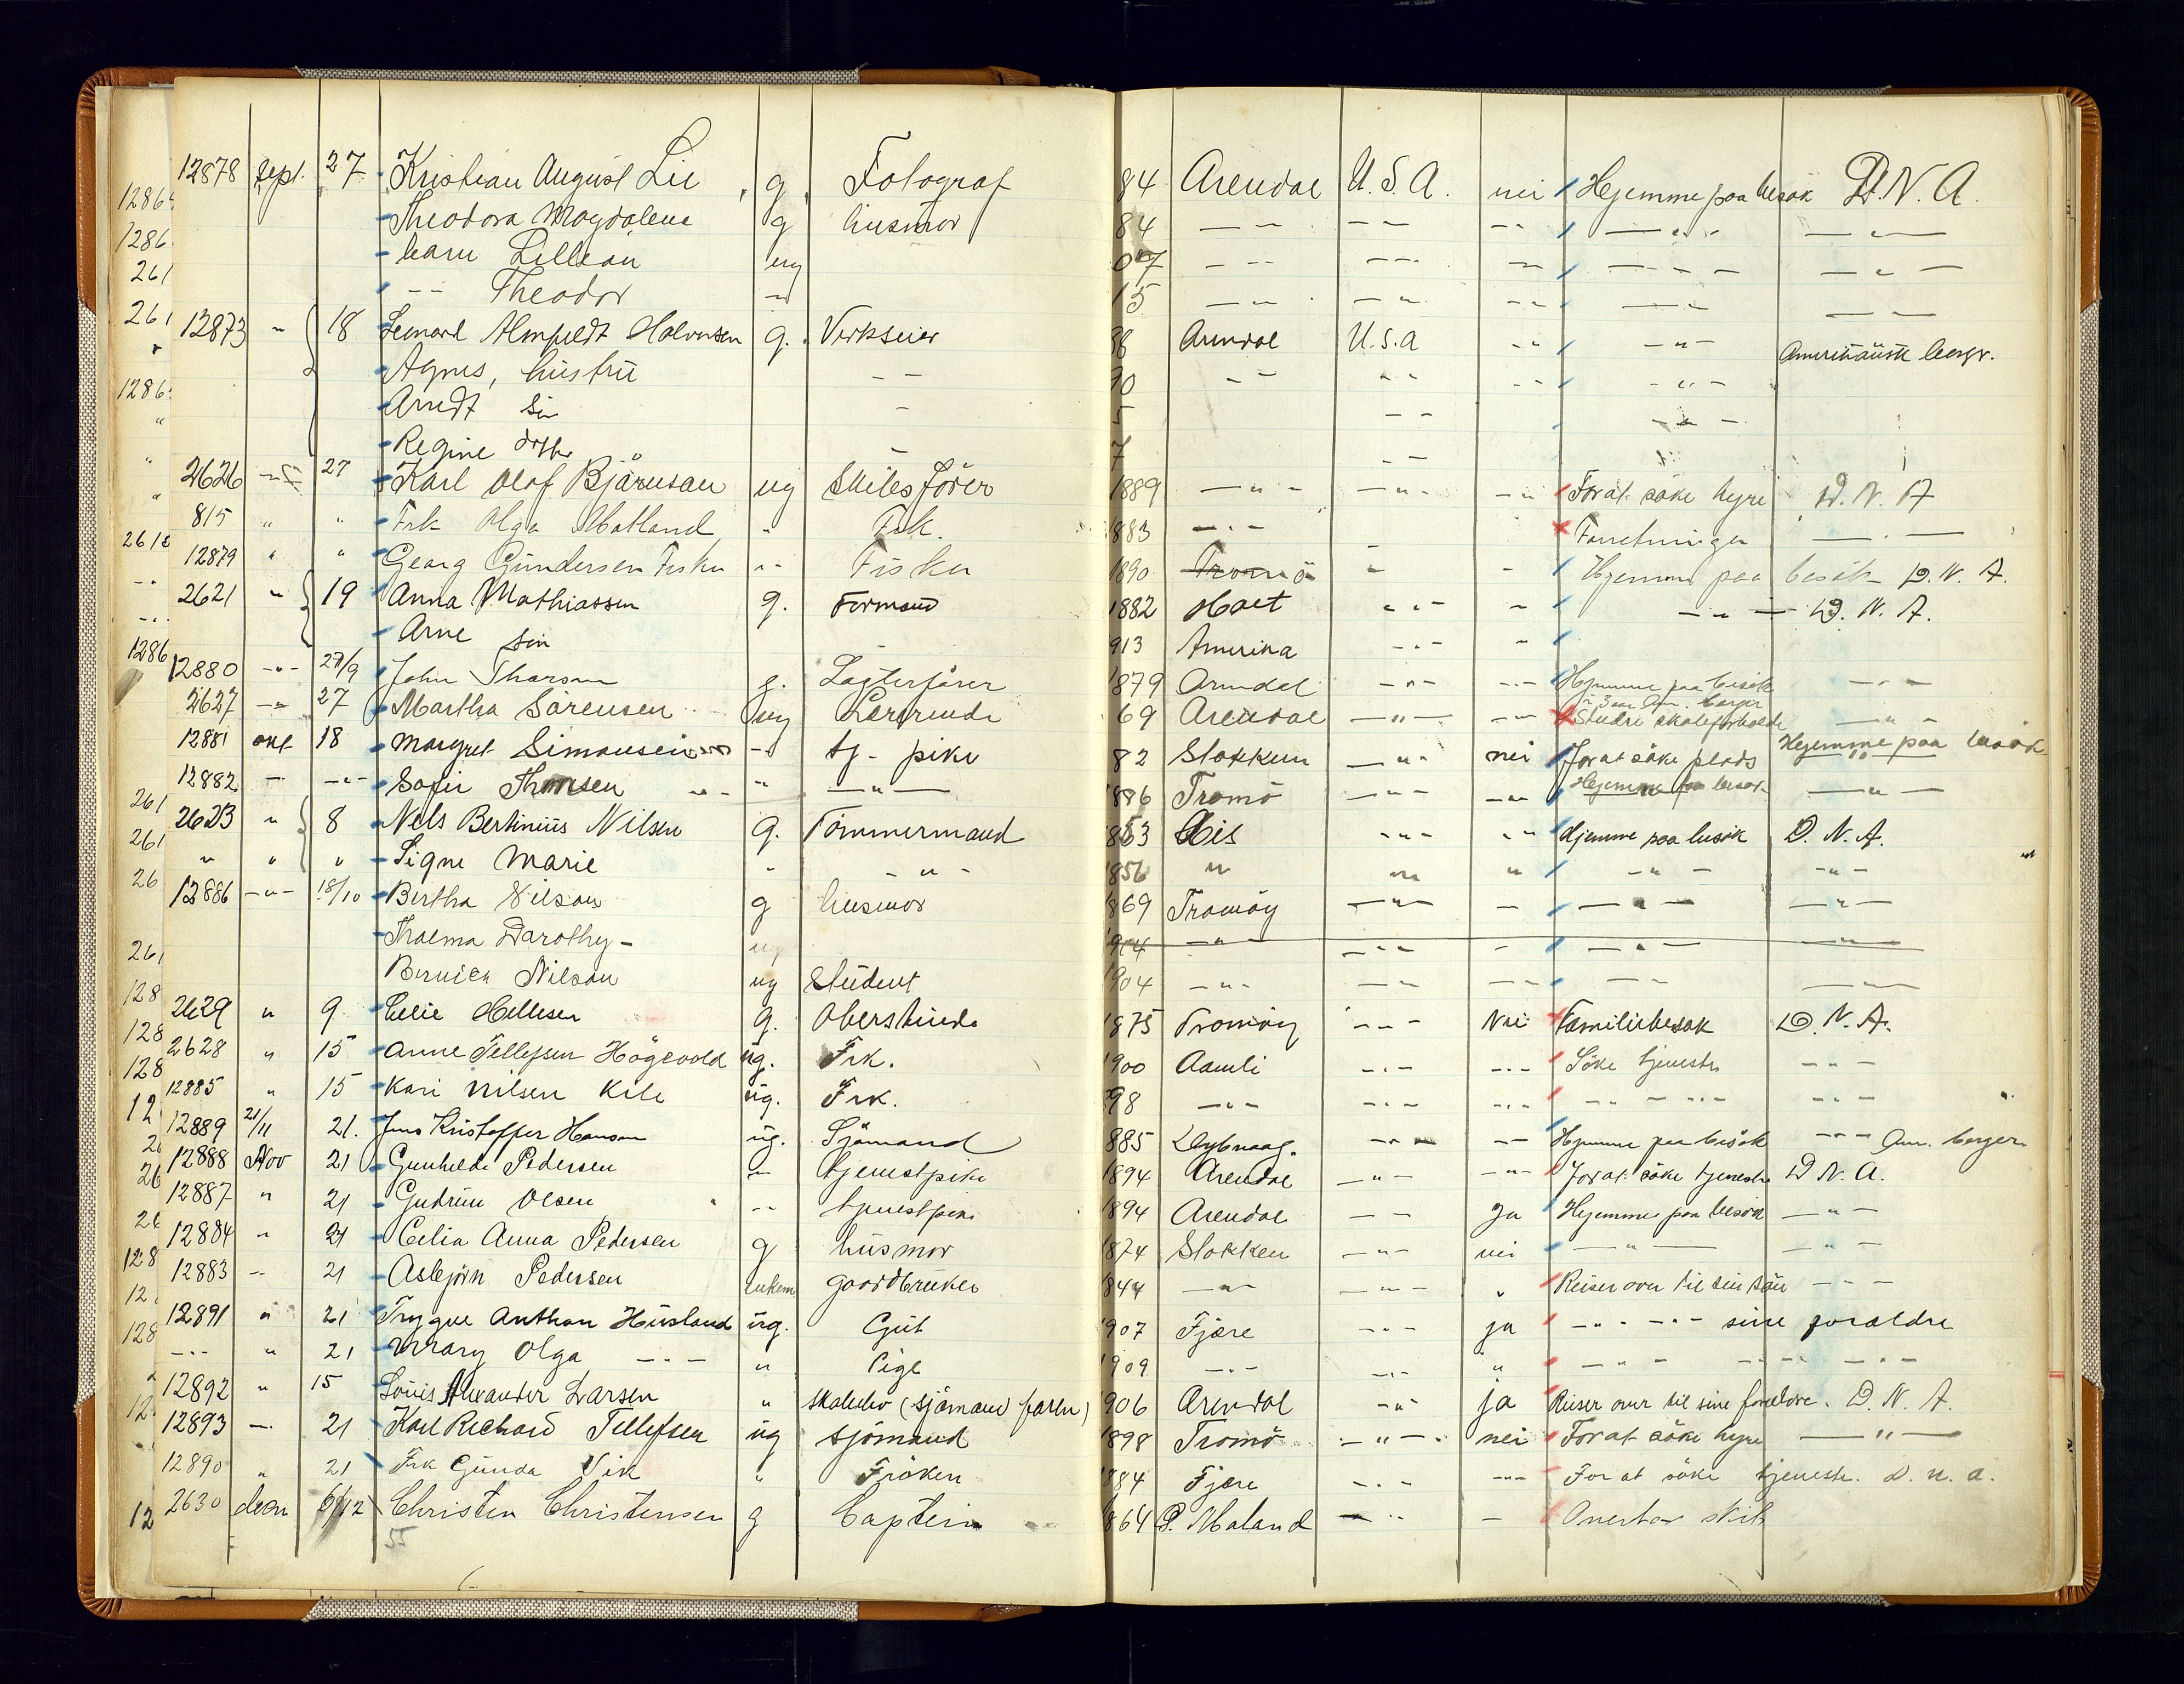 12878 Sept. 27 Kristian August Lie g. Fotograf 84 Arendal U.S.A. nei Hjemme paa besök D.N.A.
Theodora Magdalena g husmor 84 — " — — " — — " — — " — — " —
Lillian ug 07 — " — — " — — " — — " — — " —
— " — Theodor — " — 15 — " — — " — — " — — " — — " —
12873 " 18 Almfeldt Halvorsen g. Verkseier 88 Arendal U.S.A — " — — " — Amerikansk borger.
Agnes, hustru — " — 90 — " — — " — — " — — " —
Arndt sön 5 — " — — " —
Regine datter 7 — " —
2626 — " — 27 Karl Olaf Bjärnsan ug Skibsförer 1889 — " — — " — — " — Forat söke hyre D.N.A
815 " " Frk Olga Matland " Frk. 1883 — " — Forretninger — " —
12879 " " Georg Gundersen Fisker — " — Fisker 1890 Tromö — " — Hjemme paa besök D.N.A.
2621 " 19 Anna Mathiassen g. Formand 1882 Holt — " — — " — — " — D.N.A.
Arne sön 913 Amerika — " — "
12880 — " — 27/9 John Tharsen g. Lægterförer 1879 Arendal — " — — " — Hjemme paa besök — " —
2627 — " — 27 Martha Sörensen ug Lærerinde 69 Arendal — " — — " — Studre skoleforholde — " —
12881 okt 18 Margret Simonsen — " — tj-pike 82 Stokken — " — nei Forat söke plads Hjemme paa besök
12882 — " — — " — Sofie Thomsen " — " — 1886 Tromö — " — — " — Hjemme paa besök — " —
2623 " 8 Nels Bertinius Nilsen g. Tömmermand 853 His — " — — " — Hjemme paa besök D.N.A.
" " " Signe Marie " — " — 1856 " " " — " — — " —
12886 — " — 18/10 Bertha Nilson g husmor 1869 Tromöy — " — — — " — — " —
Thelma Dorothy — ug 1904 — " — — " — — — " — — " —
Bernice Nilson ug Student 1904 — " — — " — — " — — " — — " —
2629 " 9 Hellesen g. Oberstinde 1875 Tromöy — " — Nei Familiebesök D.N.A.
2628 " 15 Anne Tellefsen Högevold ug. Frk. 1900 Aamli — " — — " — Söke tjeneste — " —
12885 " 15 Kari Nilsen Kile ug. Frk. 98 — " — — " — — " — — " — — " —
12889 21/11 21. Jens Kristoffer Hansen ug. Sjömand 885 Dybvaag. — " — — " — Hjemme paa besök — " — Am. borger
12888 Nov 21 Gunhilde Pedersen — " — tjenestpike 1894 Arendal — " — — " — Forat söke tjeneste D.N.A.
12887 " 21 Gudrun Olsen — " — tjenestpike 1894 Arendal — " — Ja Hjemme paa besök — " —
12884 " 21 Celia Anna Pedersen g husmor 1874 Stokken — " — nei — " — — " —
12883 — " — 21 Asbjörn Pedersen enkem gaardbruker 1844 — " — — " — " Reiser over til sin sön — " —
12891 " 21 Trygve Anthon Husland ug. Gut 1907 Fjære — " — ja — " — — " — sine foræeldre
— " — " 21 Mary Olga — " — " Pige 1909 — " — — " — " — " — — " — — " —
12892 " 15 Louis Alexander Larsen " skoleelev (sjömand faren) 1906 Arendal — " — ja Reiser over til sine foreldre. D.N.A.
12893 — " — 21 Karl Richard Tellefsen ug sjömand 1898 Tromö — " — nei Forat söke hyre — " —
12890 " 21 Frk Gunda Vik " Fröken 1884 Fjære — " — — " — For at söke tjeneste. D.N.A.
2630 decem 6/12 Christen Christensen g Captein 1864 Ö. Moland — " — — skib
55